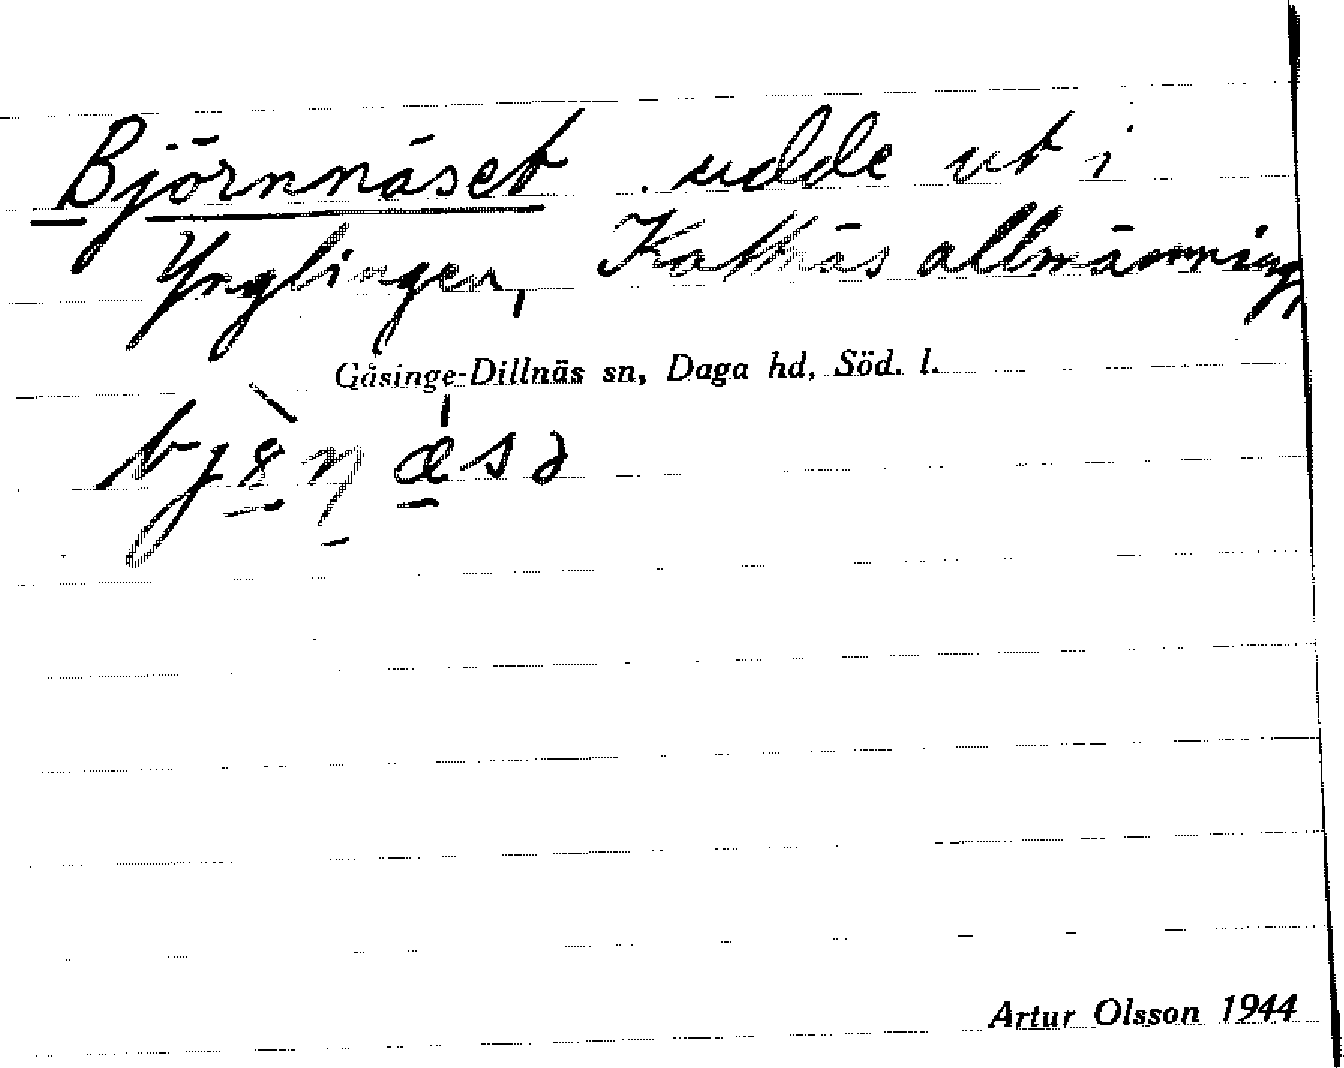 Björnnäset udde ut i
Ynglingen, Kattnäs allmänning,
Gåsinge-Dillnäs sn, Daga hd, Söd. l.
Artur Olsson 1944